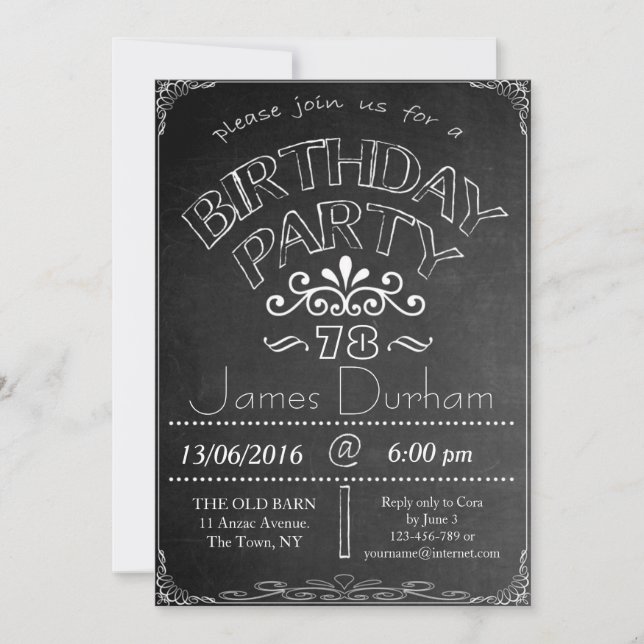 please join us for a
BIRTHDAY
PARTY
78
James Durham
13/06/2016 @ 6:00 pm
THE OLD BARN
11 Anzac Avenue.
The Town, NY
Reply only to Cora
by June 3
123-456-789 or
yourname@internet.com